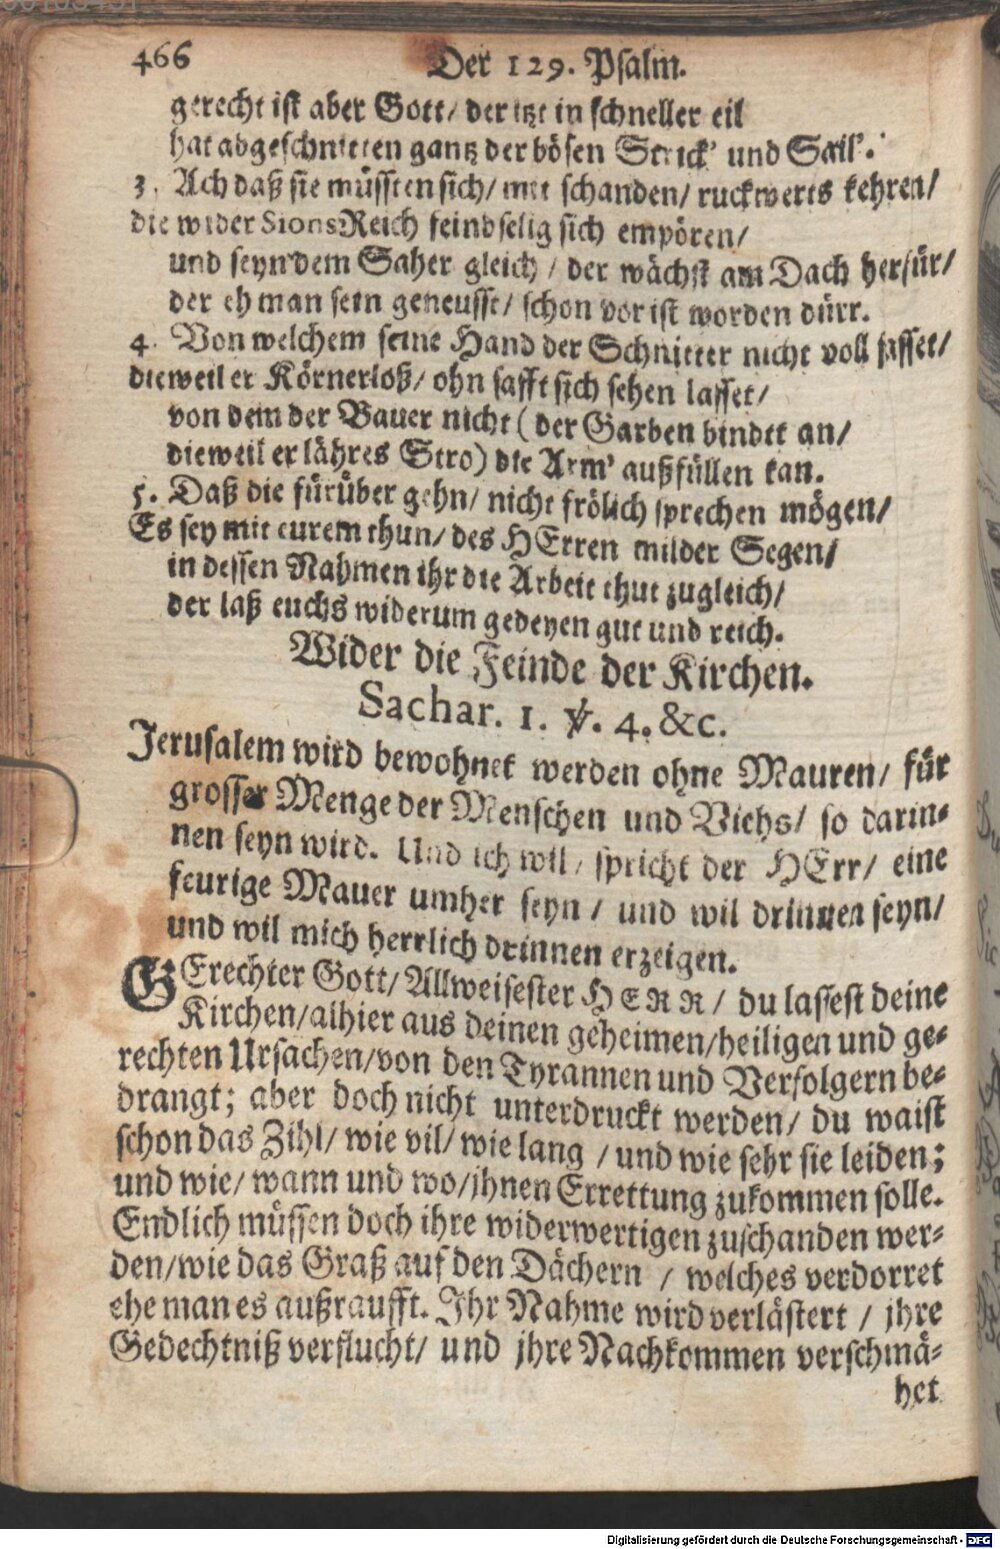 466 Der 129. Psalm.
gerecht ist aber Gott/ der itzt in schneller eil
hat abgeschnitten gantz der bösen Strick' und Sail'.
3. Ach daß sie müssten sich/ mit schanden/ ruckwerts kehren/
die wider Sions Reich feindselig sich empören/
und seyn dem Saher gleich/ der wächst am Dach herfür/
der eh man sein geneusst/ schon vor ist worden dürr.
4. Von welchem seine Hand der Schnitter nicht voll fasset/
dieweil er Körnerloß/ ohn safft sich sehen lasset/
von dem der Bauer nicht (der Garben bindet an/
dieweil er lähres Stro) die Arm' außfüllen kan.
5. Daß die fürüber gehn/ nicht frölich sprechen mögen/
Es sey mit eurem thun/ des HErren milder Segen/
in dessen Nahmen ihr die Arbeit thut zugleich/
der laß euchs widerum gedeyen gut und reich.
Wider die Feinde der Kirchen.
Sachar. 1. ℣. 4. &c.
Jerusalem wird bewohnet werden ohne Mauren/ für
grosser Menge der Menschen und Viehs/ so darin-
nen seyn wird. Und ich wil/ spricht der HErr/ eine
feurige Mauer umher seyn/ und wil drinnen seyn/
und wil mich herrlich drinnen erzeigen.
GErechter Gott/ Allweisester HERR/ du lassest deine
Kirchen/ alhier aus deinen geheimen/ heiligen und ge-
rechten Ursachen/ von den Tyrannen und Verfolgern be-
drangt; aber doch nicht unterdruckt werden/ du waist
schon das Zihl/ wie vil/ wie lang/ und wie sehr sie leiden;
und wie/ wann und wo/ jhnen Errettung zukommen solle.
Endlich müssen doch ihre widerwertigen zuschanden wer-
den/ wie das Graß auf den Dächern/ welches verdorret
ehe man es außraufft. Ihr Nahme wird verlästert/ jhre
Gedechtniß verflucht/ und jhre Nachkommen verschmä-
het
Digitalisierung gefördert durch die Deutsche Forschungsgemeinschaft - DFG